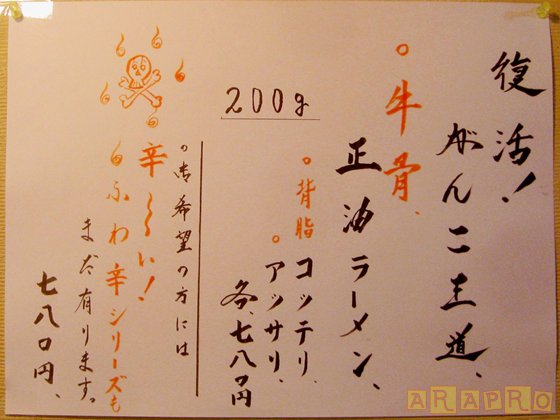 復活!
がんこ王道、
。牛骨、
正油ラーメン、
。背脂コッテリ、
。アッサリ、
各、七八〇円
200g
。御希望の方には
辛〜い!
ふわ辛シリーズも
まだ有ります。
七八〇円、
ARAPRO